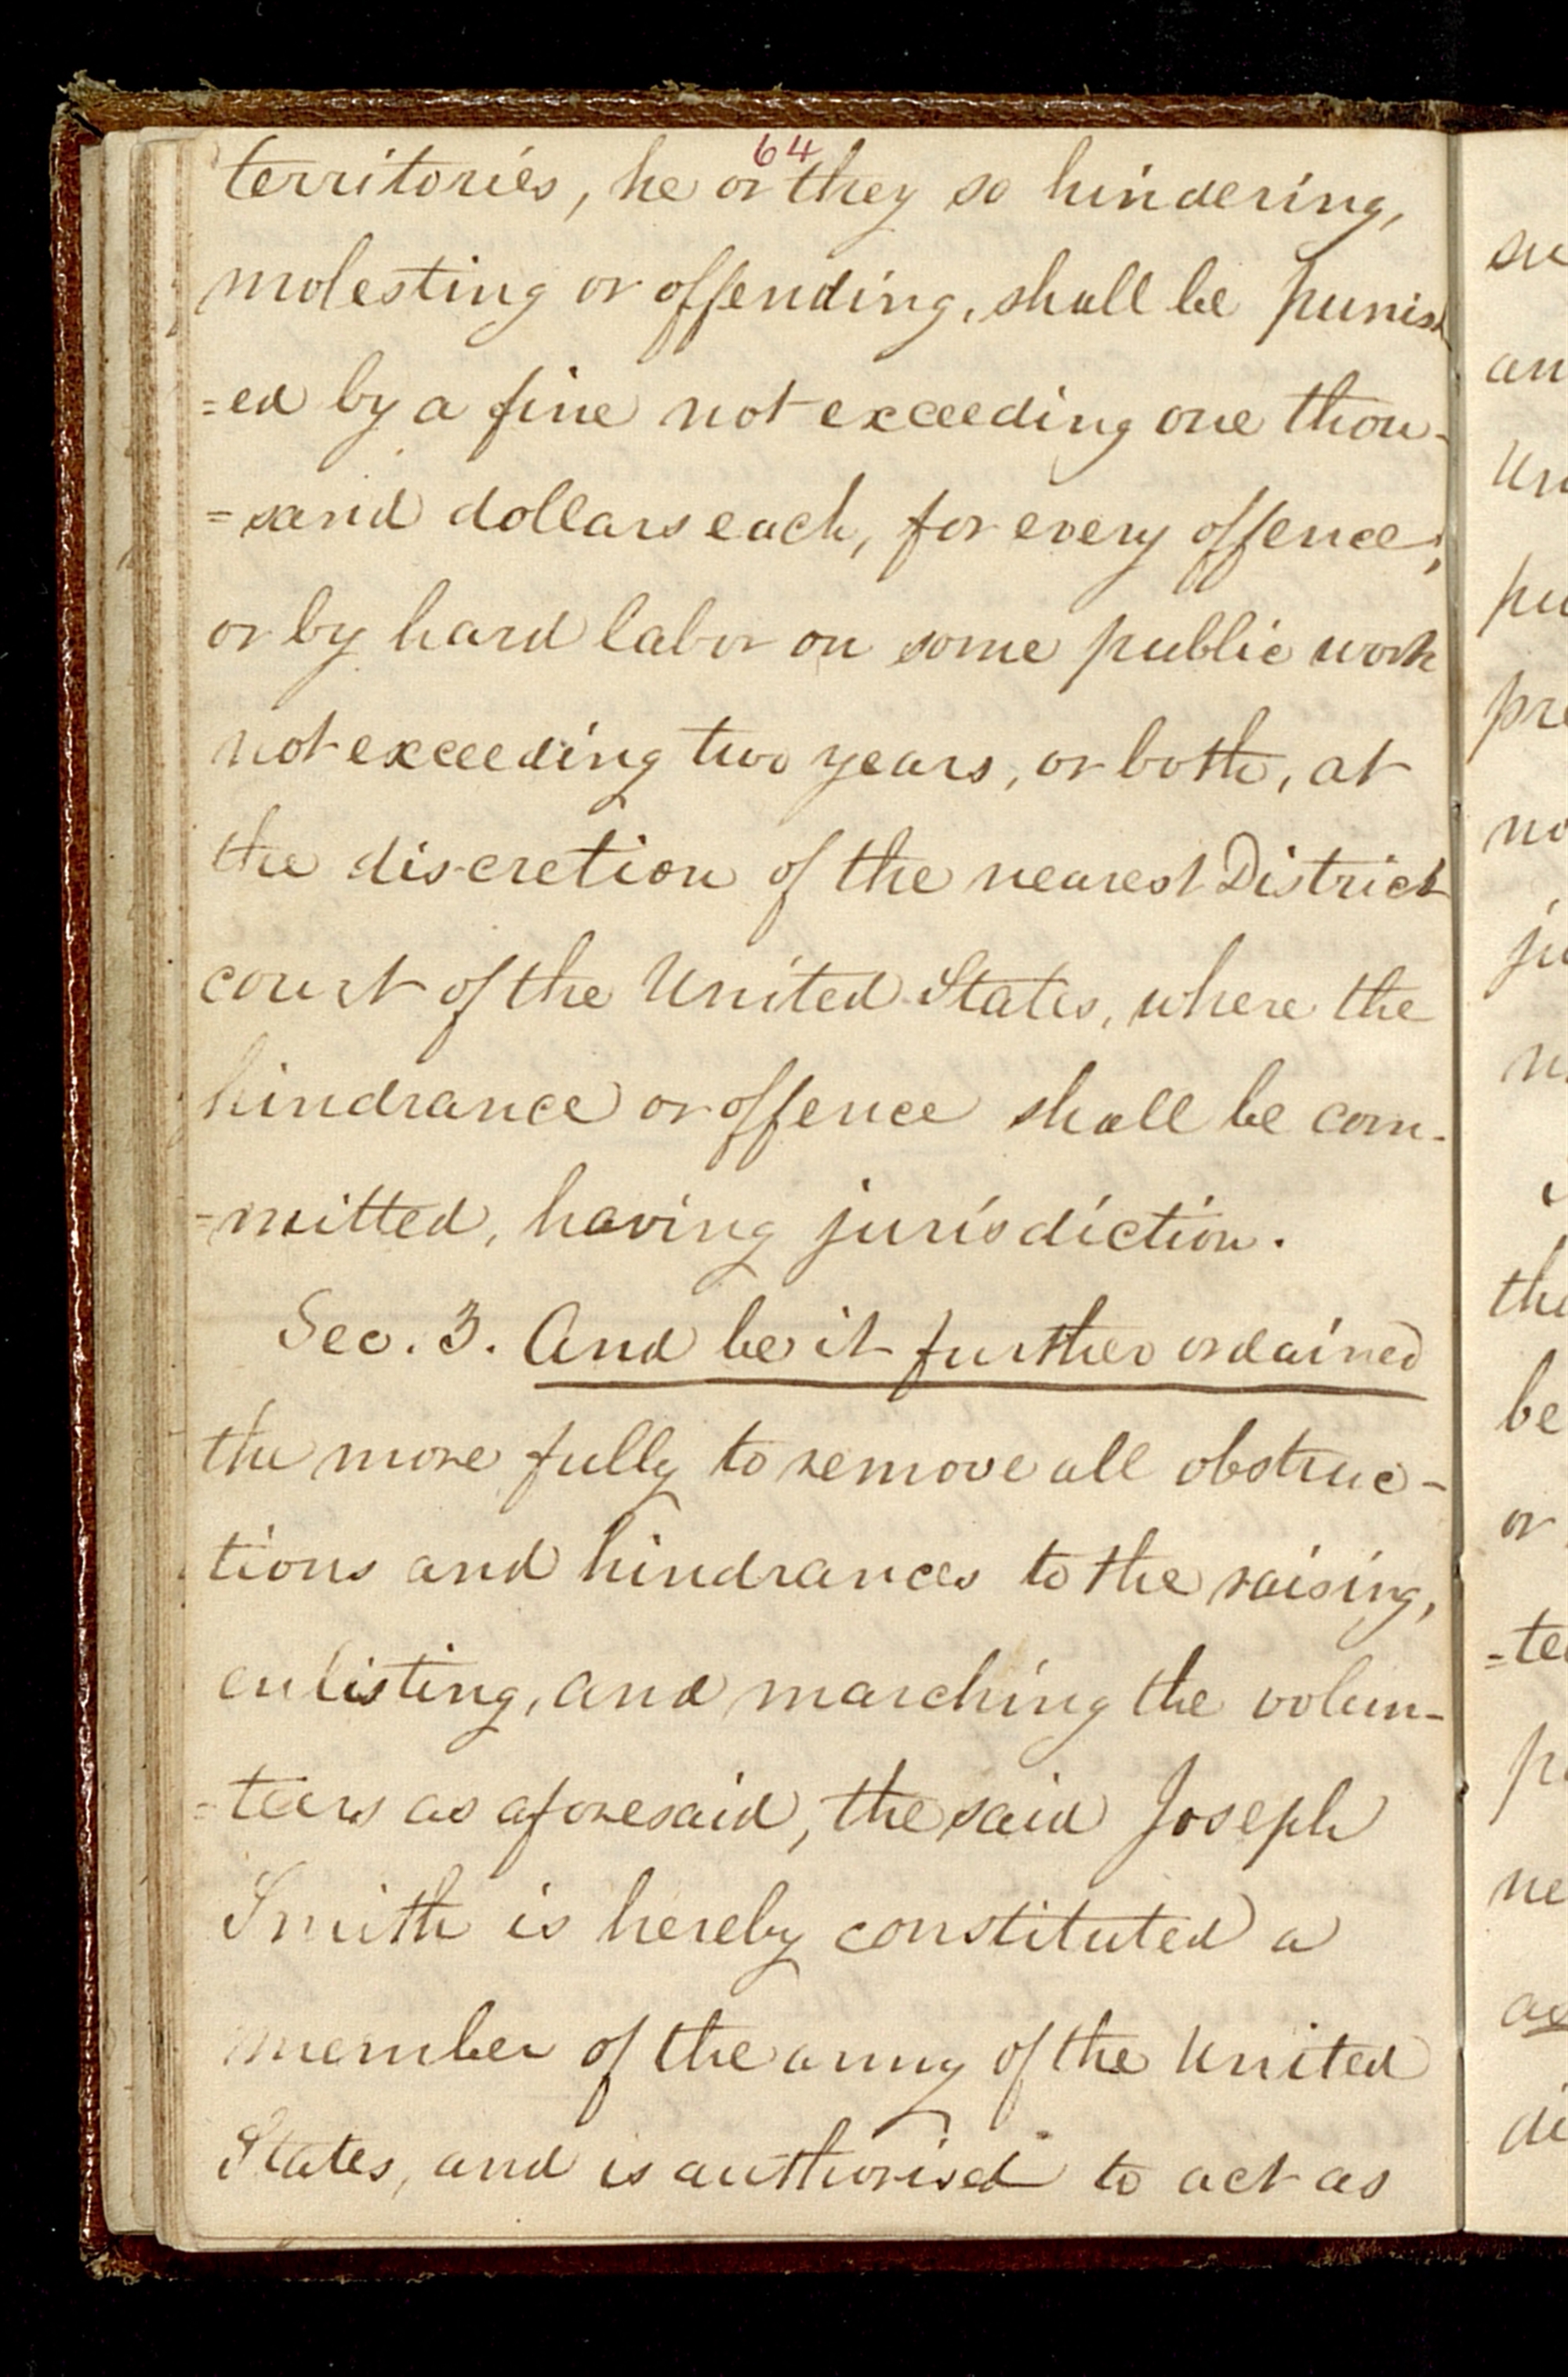 64
territories, he or they so hindering,
molesting or offending, shall be punish
=ed by a fine not exceeding one thou-
=sand dollars each, for every offence,
or by hard labor on some public work
not exceeding two years, or both, at
the discretion of the nearest District
court of the United States, where the
hindrance or offence shall be com-
-mitted, having jurisdiction.
Sec. 3. And be it further ordained
the more fully to remove all obstruc-
tions and hindrances to the raising,
enlisting, and marching the volun-
=teers as aforesaid, the said Joseph
Smith is hereby constituted a
member of the army of the United
States, and is authorised to act as